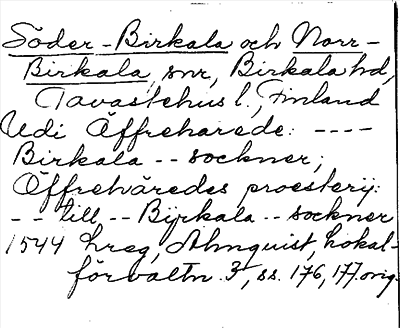 Söder-Birkala och Norr-
Birkala, snr, Birkala hd,
Tavastehus l., Finland
Udi Äffreharede: ----
Birkala -- sockner;
Öffrehäredes proesterij:
-- till -- Byrkala -- sockner
1544 hreg, Almquist, Lokal-
förvaltn. 3, ss. 176, 177. orig.